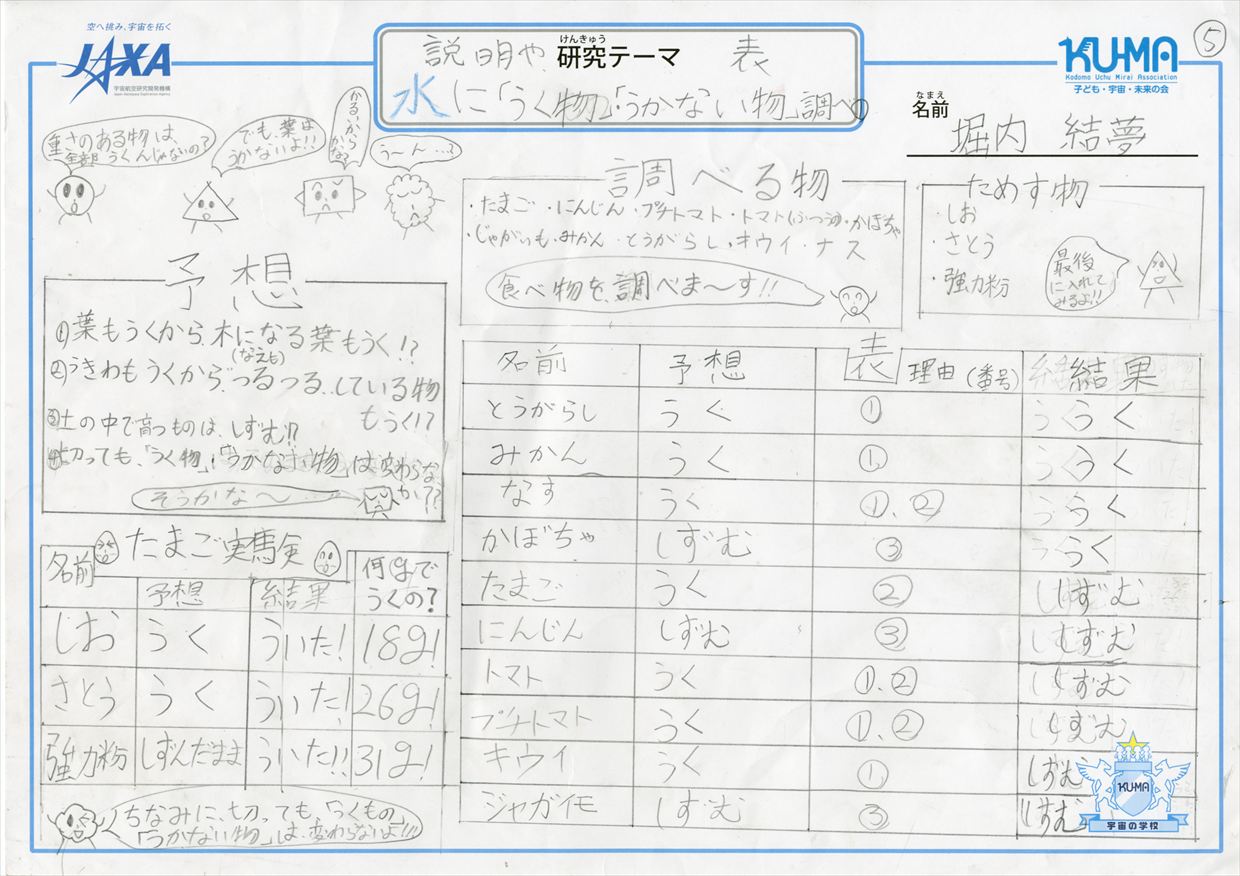 空へ挑み、宇宙を拓く
JAXA
宇宙航空研究開発機構
Japan Aerospace Exploration Agency
説明や
けんきゅう
研究テーマ
表
水に「うく物」「うかない物」調べの
KU-MA
Kodomo Uchu Mirai Association
子ども・宇宙・未来の会
⑤
なまえ
名前
堀内 結夢
重さのある物は、
全部うくんじゃないの?
でも、葉は
うかないよ!!
かるいから
かな?
う〜ん…?
調べる物
・たまご ・にんじん・プチトマト・トマト(ふつう)・かぼちゃ
・じゃがいも・みかん・とうがらし・キウイ・ナス
食べ物を調べま〜す!!
ためす物
・しお
・さとう
・強力粉
最後
に入れて
みるよ!!
予想
①葉もうくから、木になる葉もうく!?
(なえも)
②うきわもうくから、つるつる、している物
もうく!?
③土の中で育つものは、しずむ!?
④切っても、「うく物」「うかない物」は変わらな
か??
そうかな〜
たまご実験
名前 予想 結果 何gまで
うくの?
しお うく ういた! 18g!
さとう うく ういた! 26g!
強力粉 しずんだまま ういた!! 31g!
ちなみに、切っても、「うくもの」
「うかない物」は、変わらないよ!!!
表
名前 予想 理由(番号) 結果
とうがらし うく ① うく
みかん うく ① うく
なす うく ①、② うく
かぼちゃ しずむ ③ うく
たまご うく ② しずむ
にんじん しずむ ③ しずむ
トマト うく ①、② しずむ
プチトマト うく ①、② しずむ
キウイ うく ① しずむ
ジャガイモ しずむ ③ しずむ
KU-MA
宇宙の学校